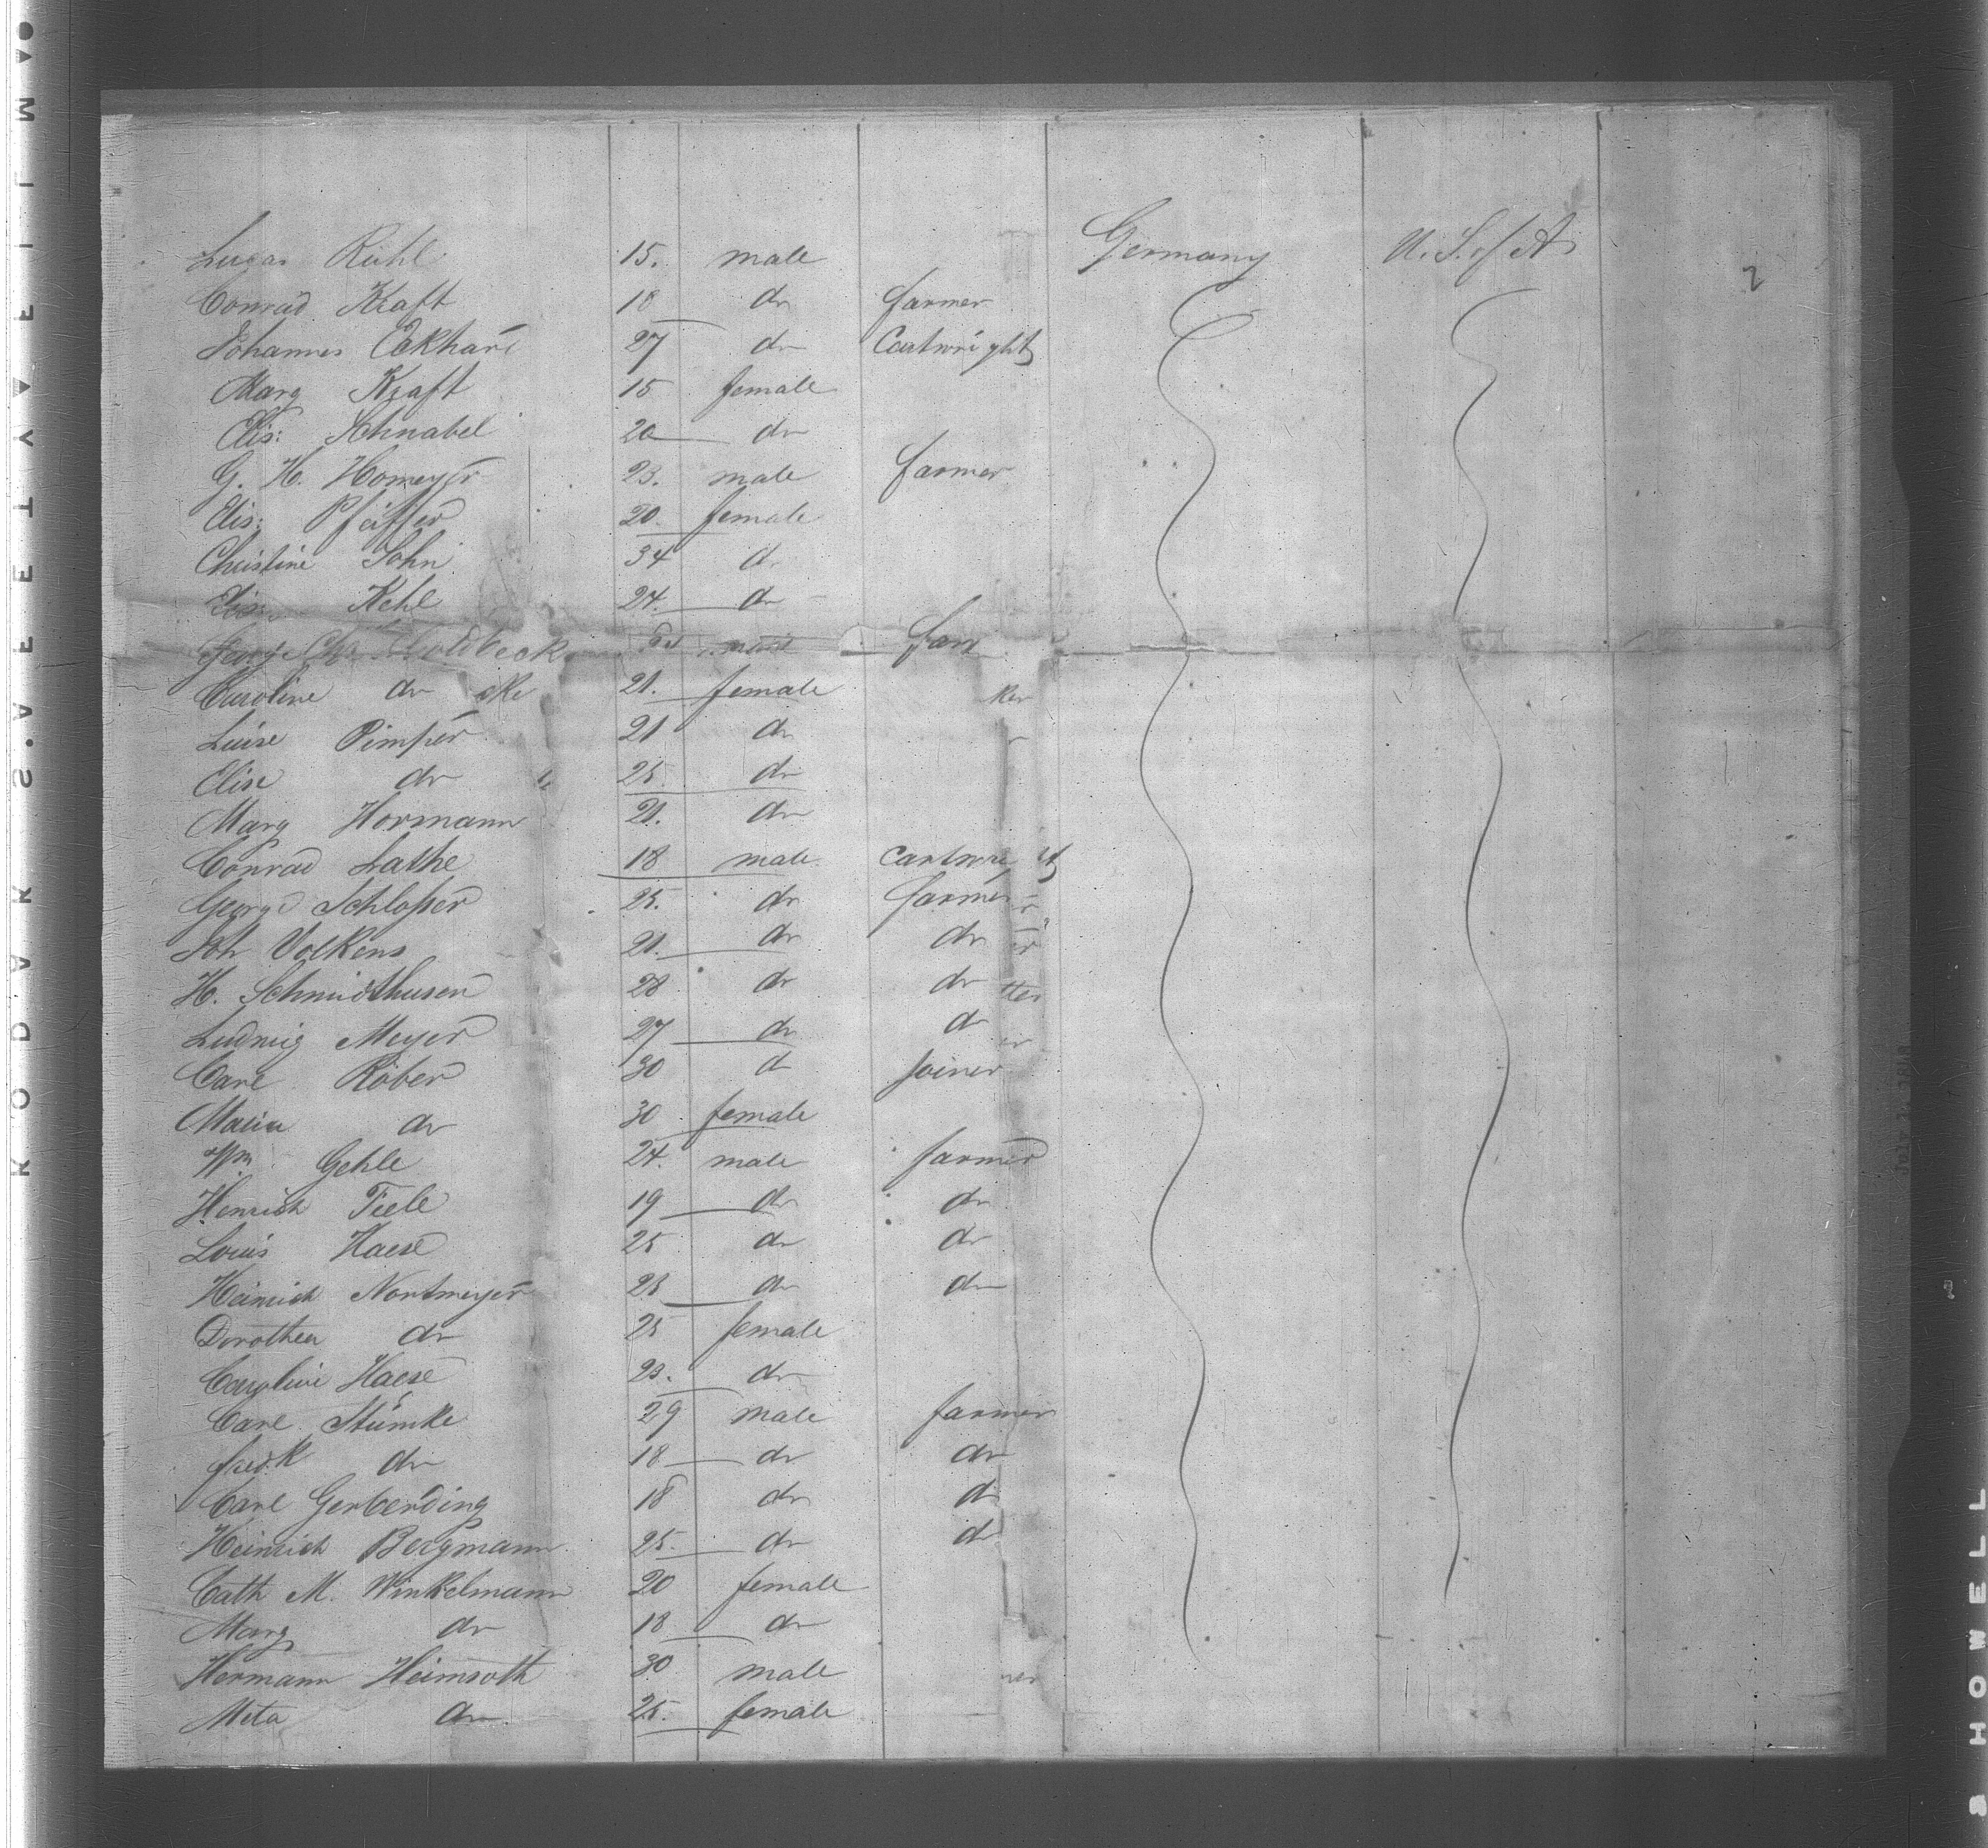 Lucas Rühl 15. male Germany U. S. of A.
2
Conrad Kraft 18 do farmer
Johannes Eckhard 27 do Cartwright
Marg Kraft 15 female
Elis: Schnabel 20 do
G. H. Homeyer 23. male farmer
Elis: Pfeiffer 20. female
Christine Sohn 34 do
Elis: Kehl 24. do
Goldbeck male farm
Caroline do 21. female
Luise Pimper 21 do
Elise do 25. do
Marg Hormann 21. do
Conrad Lathe 18 male
George Schlosser 25. do farmer
Joh Volkens 21. do do
H. Schmidthusen 28 do do
Ludwig Meyer 27 do do
Carl Röber 30 do joiner
Maria do 30 female
Wm Gehle 24. male farmer
Henrich Tiele 19 do do
Louis Haese 25 do do
Heinrich Nortmeyer 23 do do
Dorothea do 25 female
Caroline Haese 23. do
Carl Stümke 29 male farmer
fredk do 18 do do
Carl Gerberding 18 do do
Heinrich Bergmann 25. do do
Cath M. Winkelmann 20 female
Marg do 18 do
Hermann Heimsoth 30 male
Meta do 25. female
HOWELL